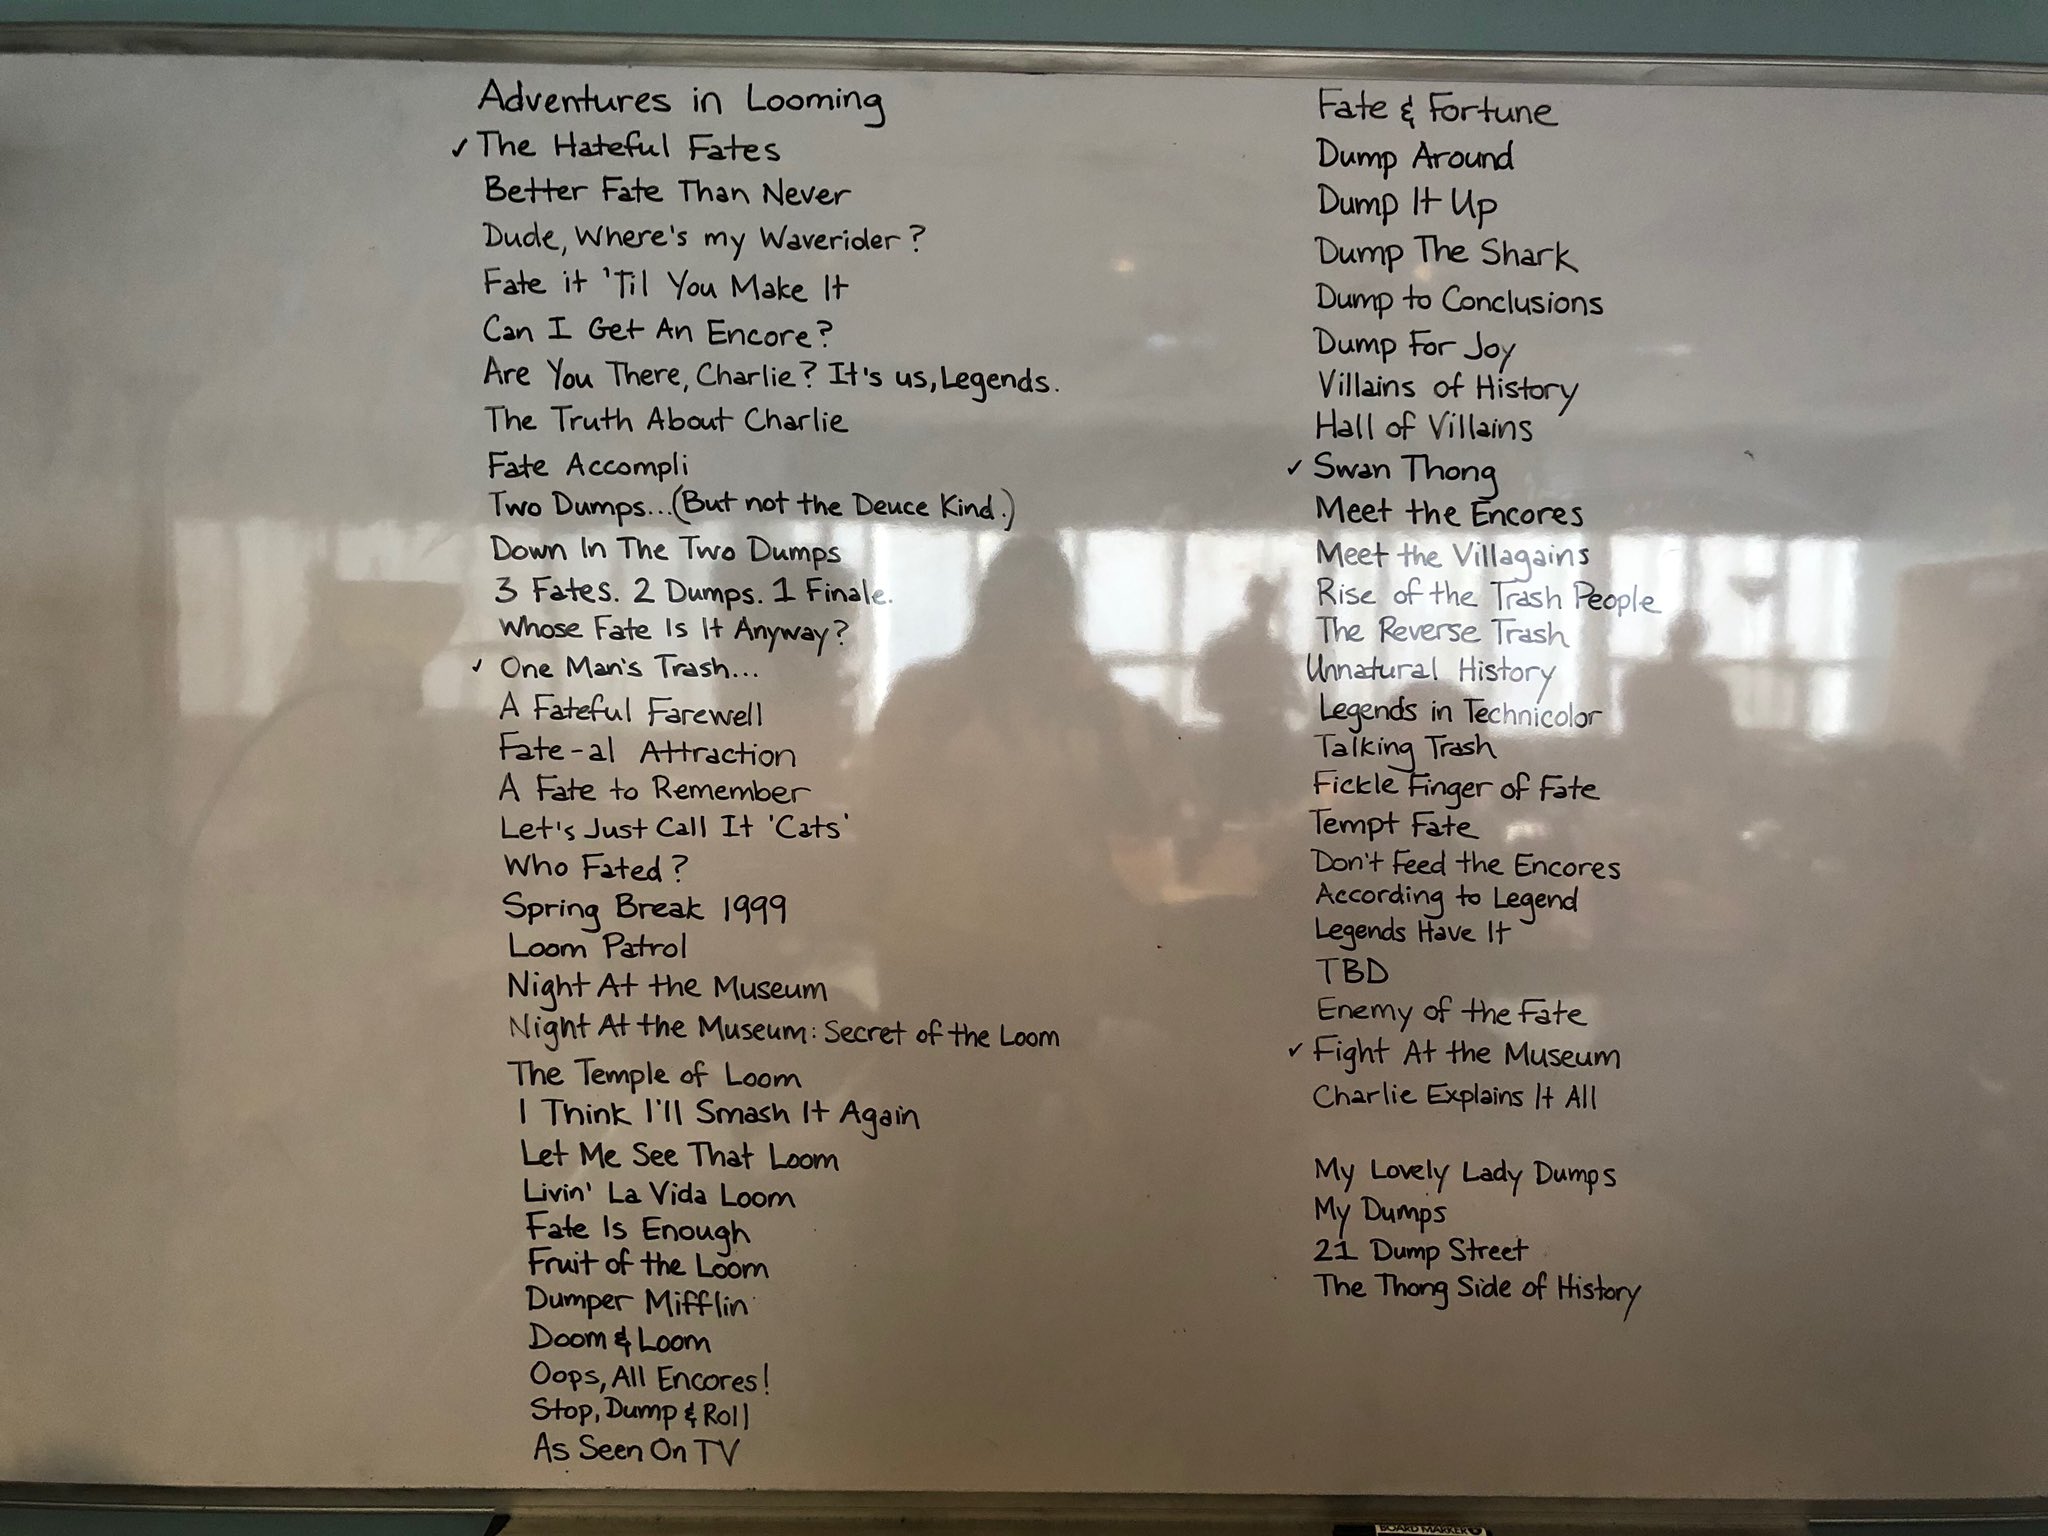 Adventures in Looming
✓ The Hateful Fates
Better Fate Than Never
Dude, Where's my Waverider?
Fate it 'Til You Make It
Can I Get An Encore?
Are You There, Charlie? It's us, Legends.
The Truth About Charlie
Fate Accompli
Two Dumps...(But not the Deuce Kind.)
Down In The Two Dumps
3 Fates. 2 Dumps. 1 Finale.
Whose Fate Is It Anyway?
✓ One Man's Trash...
A Fateful Farewell
Fate-al Attraction
A Fate to Remember
Let's Just Call It 'Cats'
Who Fated?
Spring Break 1999
Loom Patrol
Night At the Museum
Night At the Museum: Secret of the Loom
The Temple of Loom
I Think I'll Smash It Again
Let Me See That Loom
Livin' La Vida Loom
Fate Is Enough
Fruit of the Loom
Dumper Mifflin
Doom & Loom
Oops, All Encores!
Stop, Dump & Roll
As Seen On TV
Fate & Fortune
Dump Around
Dump It Up
Dump The Shark
Dump to Conclusions
Dump For Joy
Villains of History
Hall of Villains
✓ Swan Thong
Meet the Encores
Meet the Villagains
Rise of the Trash People
The Reverse Trash
Unnatural History
Legends in Technicolor
Talking Trash
Fickle Finger of Fate
Tempt Fate
Don't Feed the Encores
According to Legend
Legends Have It
TBD
Enemy of the Fate
✓ Fight At the Museum
Charlie Explains It All
My Lovely Lady Dumps
My Dumps
21 Dump Street
The Thong Side of History
BOARD MARKER